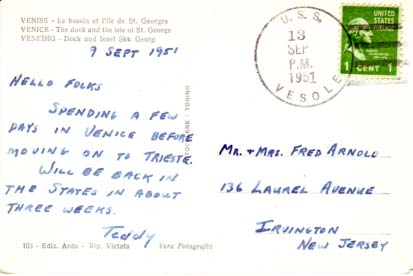 VENISE - Le bassin et l'île de St. Georges
VENICE - The dock and the isle of St. George
VENEDIG - Dock und Insel Skt Georg
9 SEPT 1951
HELLO FOLKS
SPENDING A FEW
DAYS IN VENICE BEFORE
MOVING ON TO TRIESTE.
WILL BE BACK IN
THE STATES IN ABOUT
THREE WEEKS.
Teddy
103 - Ediz. Ardo - Rip. Vietata Vera Fotografia
TORINO
U. S. S.
13
SEP
P.M.
1951
VESOLE
UNITED STATES
POSTAGE
1 CENT 1
MR. & MRS. FRED ARNOLD
136 LAUREL AVENUE
IRVINGTON
NEW JERSEY